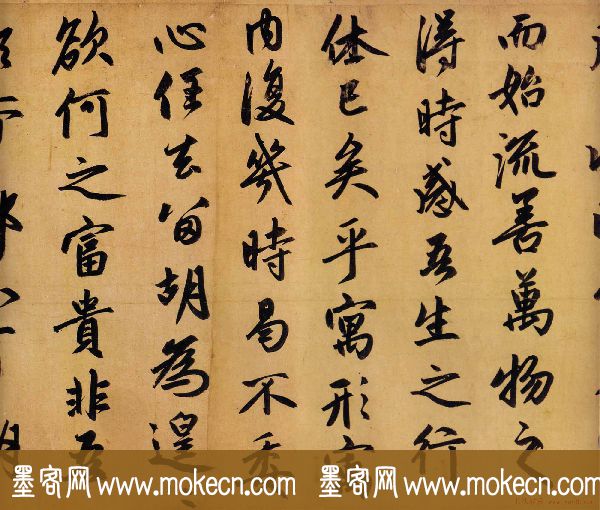 而始流善萬物之
得時感吾生之行
休已矣乎寓形宇
内復幾時曷不委
心任去留胡為遑
欲何之富貴非吾
墨客网 www.mokecn.com 墨客网 www.mokecn.com